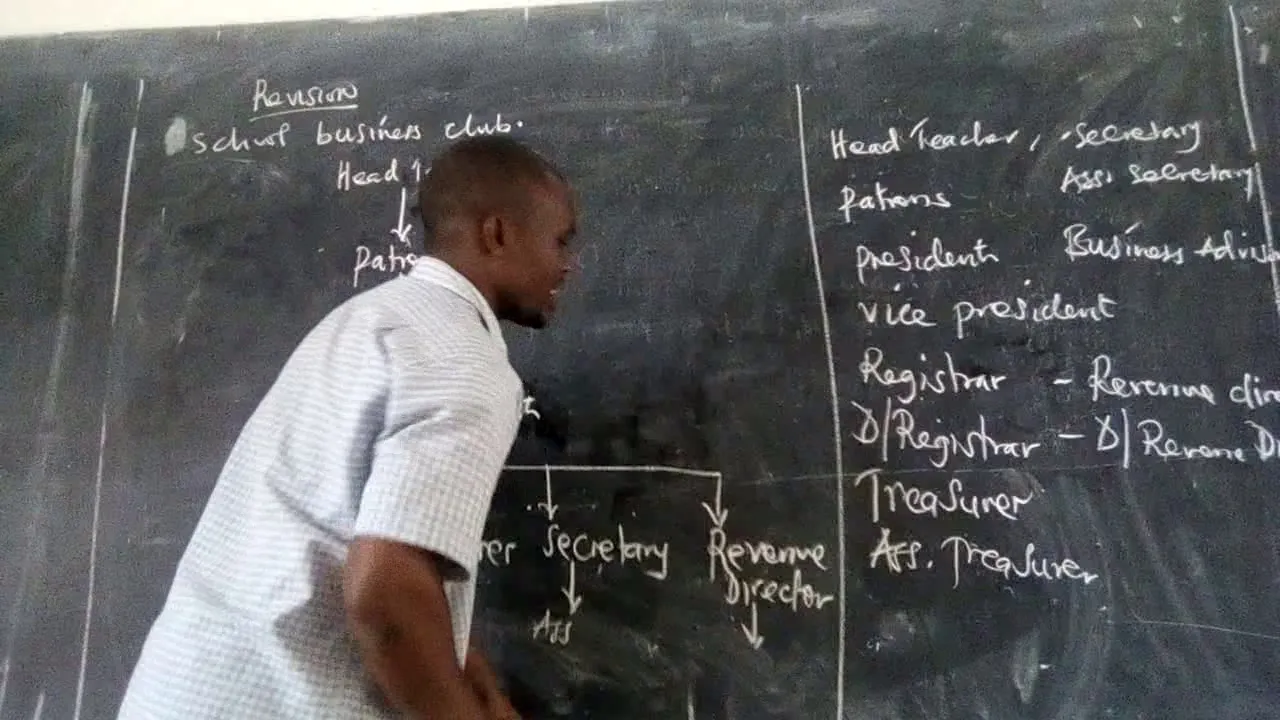 Revision
School business club.
Head
Secretary Revenue
Director
Ass
Head Teacher, - Secretary
patrons Ass. Secretary
president Business
vice president
Registrar - Revenue
D/Registrar - D/Revenue
Treasurer
Ass. Treasurer